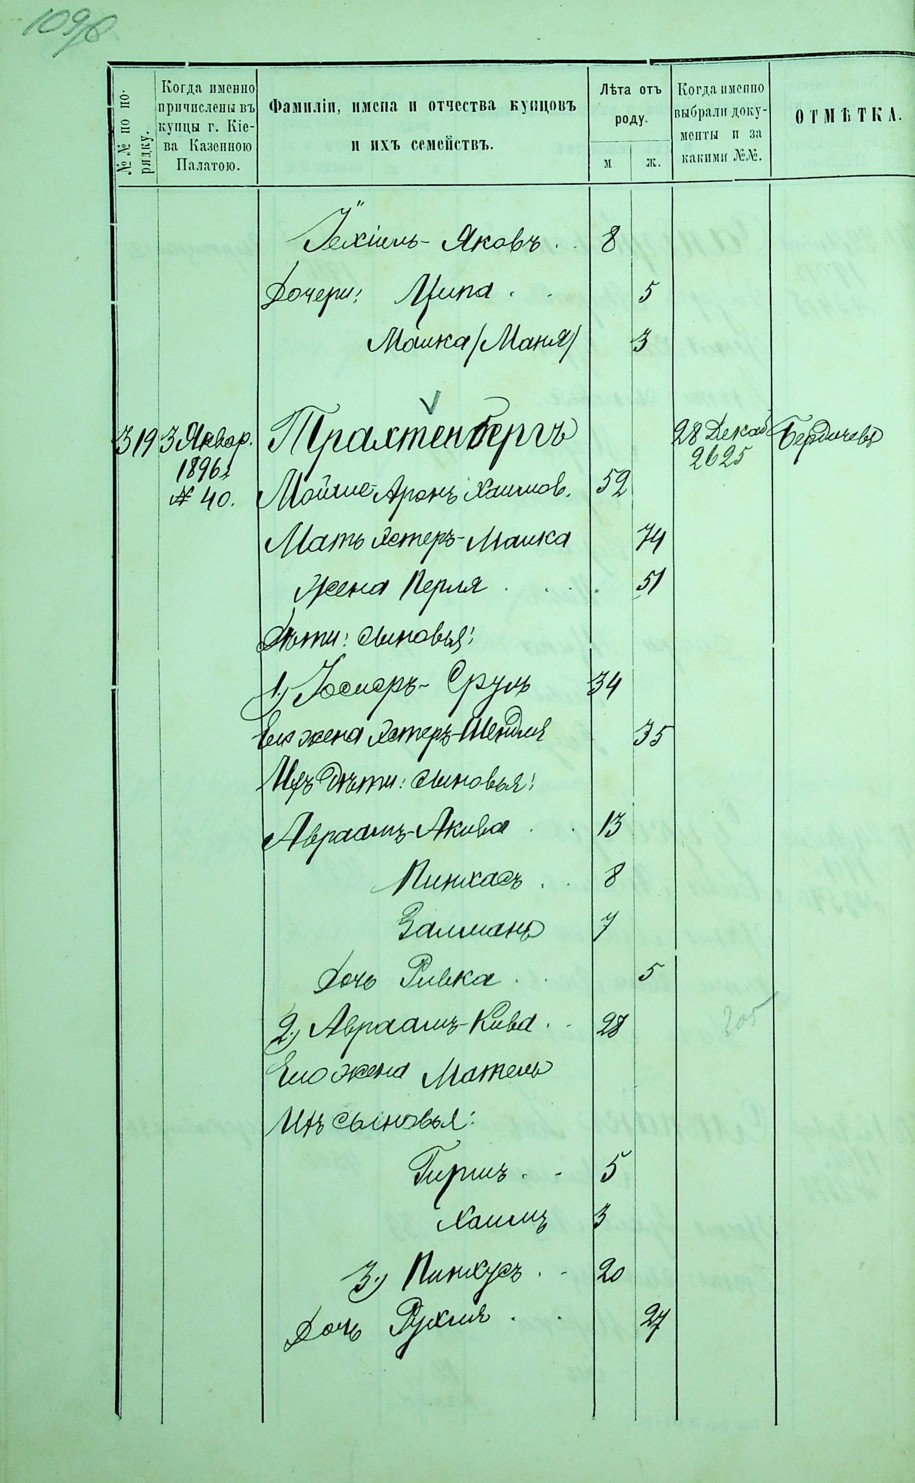 109
№№ по порядку.
Когда именно причислены въ купцы г. Кіева Казенною Палатою.
Фамиліи, имена и отчества купцовъ и ихъ семействъ.
Лѣта отъ роду.
м
ж.
Когда именно выбрали документы и за какими №№.
ОТМѢТКА.
Іехіель-Яковъ . 8
Дочери: Ципа . . 5
Малка /Маня/ 3
319 3 Январ. Трахтенбергъ 28 Декаб Бердичевъ
1896 г. 2625
№ 40. Мойше-Аронъ Хаимов. 52
Мать Эстеръ-Малка 74
Жена Перля . . . . 51
Дѣти: сыновья:
1) Іосифъ-Сруль 34
Его жена Эстеръ-Шейндля 35
Ихъ дѣти: сыновья:
Авраамъ-Акива . . 13
Пинхасъ . . 8
Залманъ 7
Дочь Ривка . . 5
2) Авраамъ-Кива . . 28
205
Его жена Матель
Ихъ сыновья:
Гиршъ . . 5
Хаимъ 3
3) Пинхусъ . . 20
Дочь Рухля . . 27